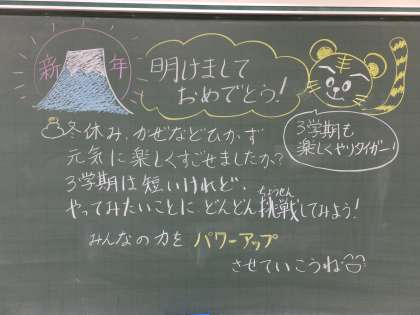 新年
明けまして
おめでとう!
3学期も
楽しくやりタイガー!
冬休み、かぜなどひかず
元気に楽しくすごせましたか?
3学期は短いけれど、
やってみたいことにどんどん挑戦してみよう!
ちょうせん
みんなの力をパワーアップ
させていこうね